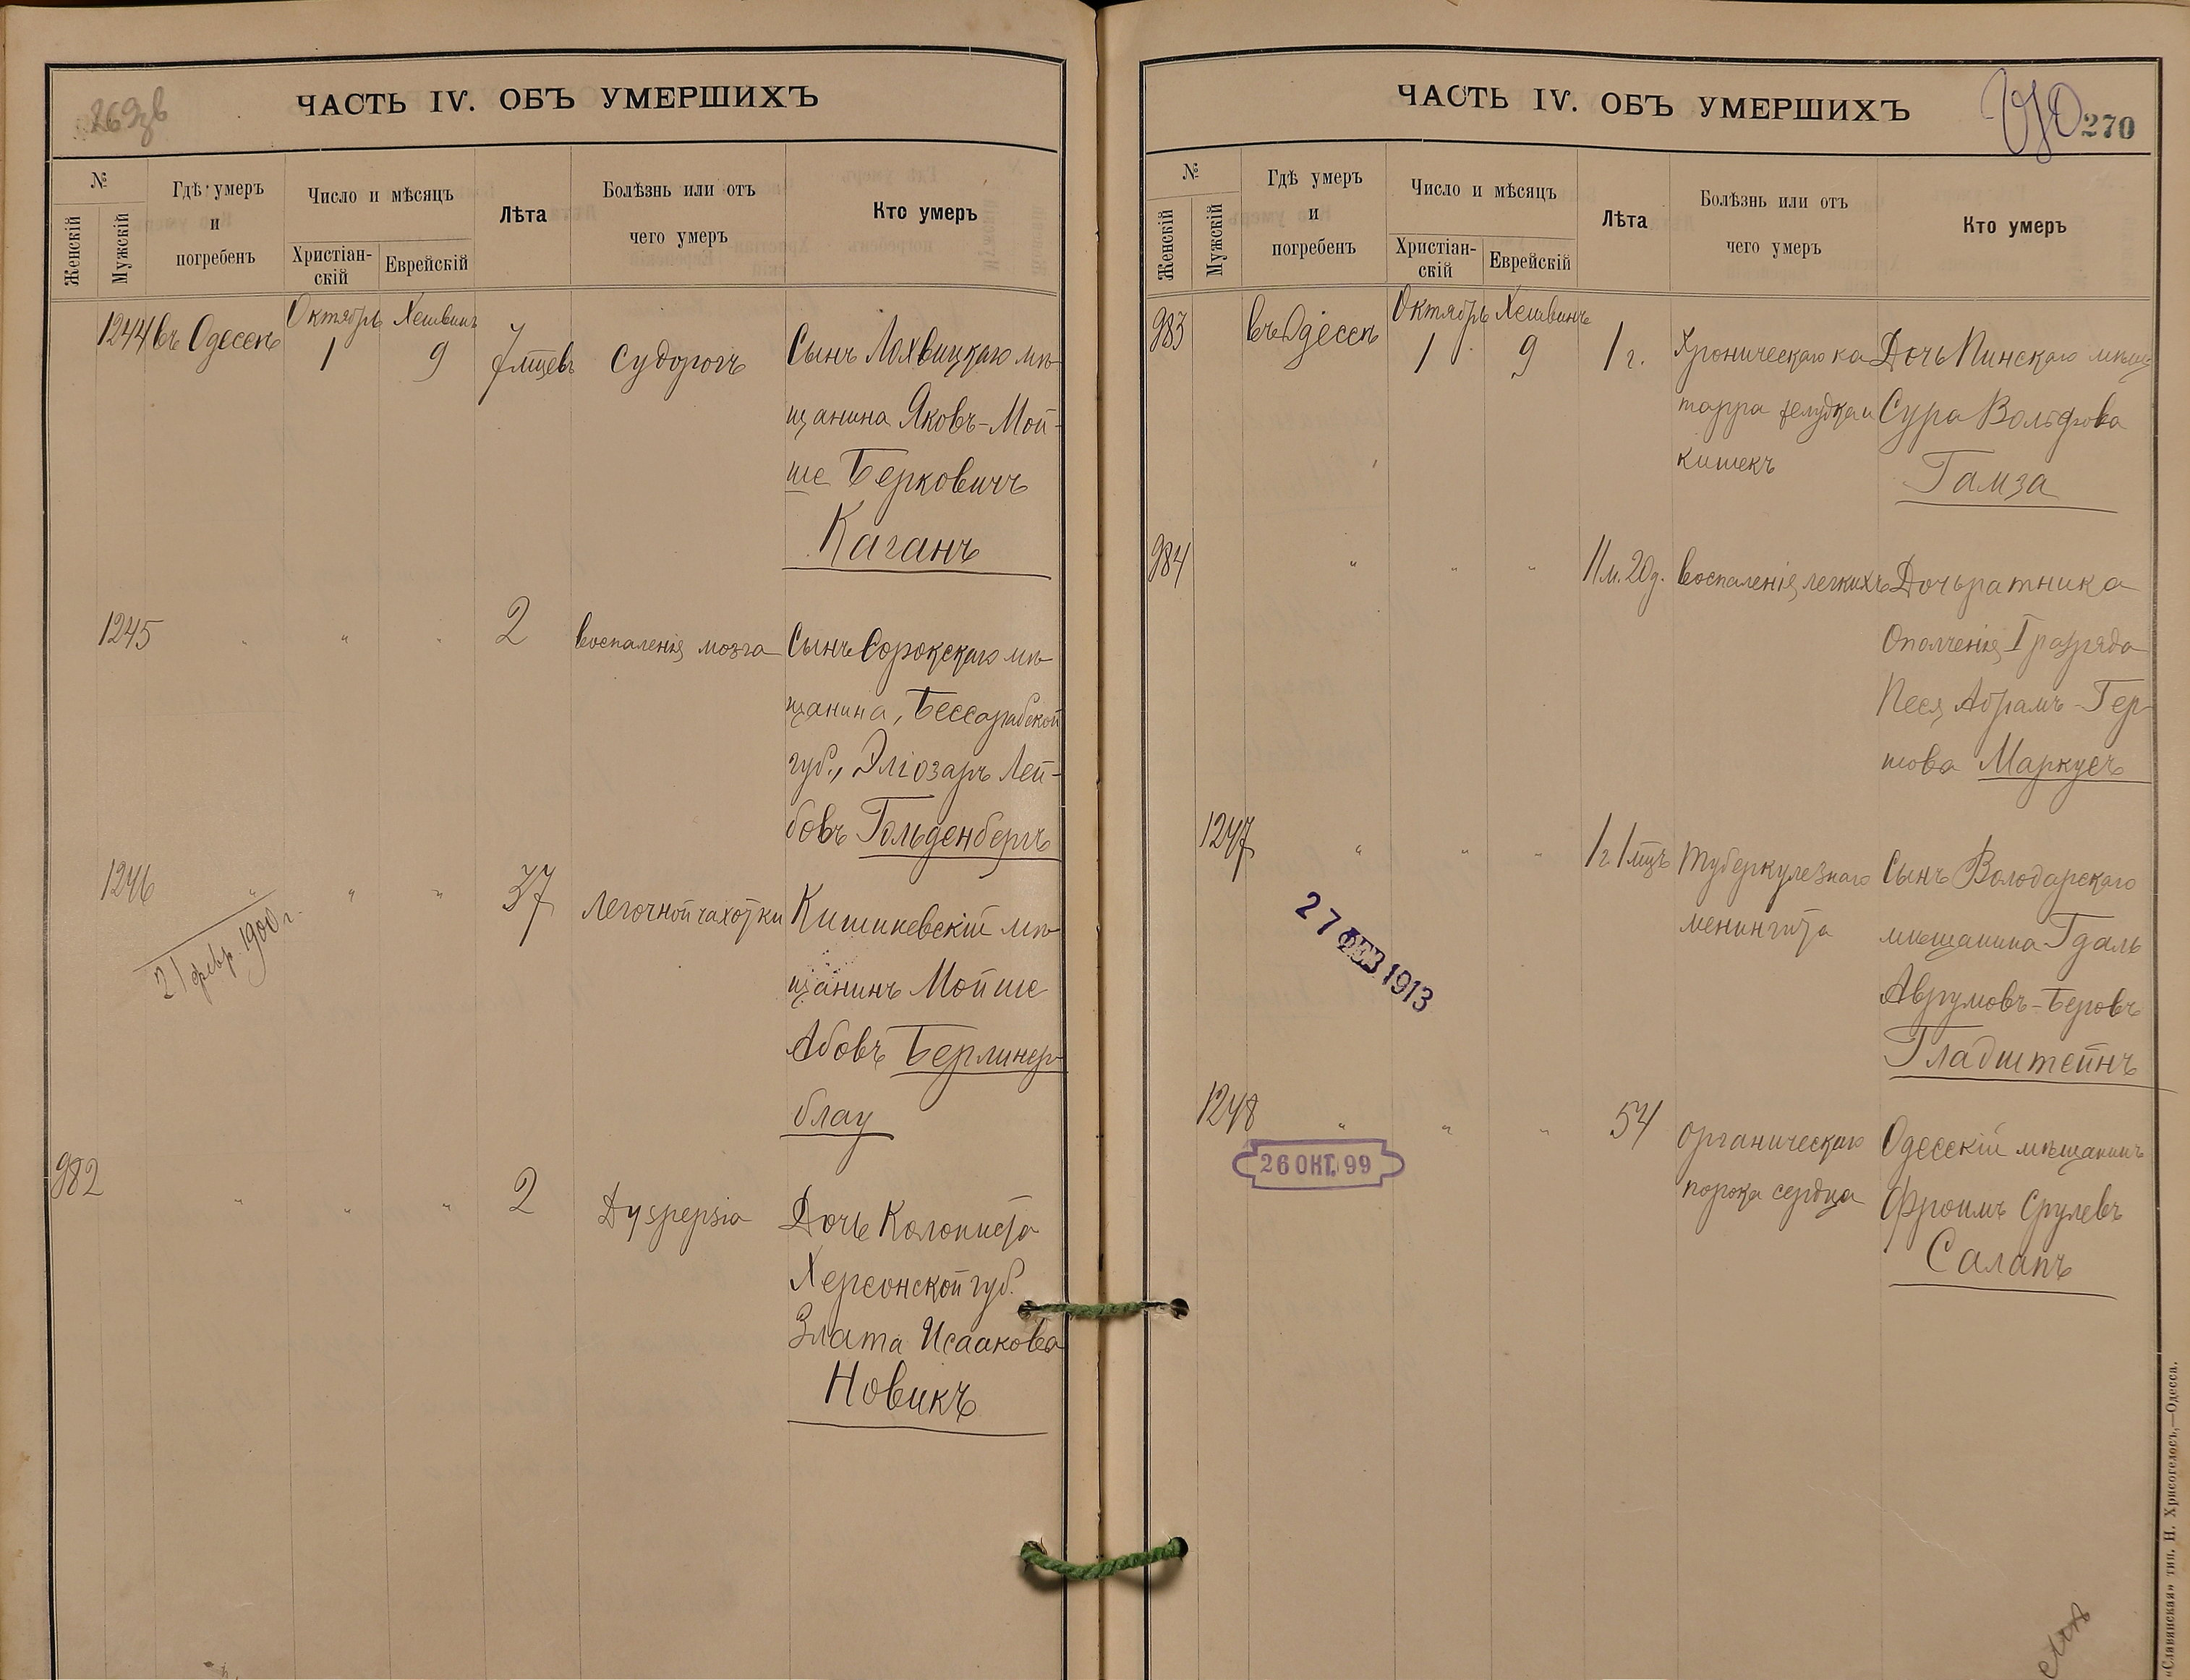 ЧАСТЬ IV. ОБЪ УМЕРШИХЪ
№
Женскій
Мужскій
Гдѣ умеръ
и
погребенъ
Число и мѣсяцъ
Христіан-
скій
Еврейскій
Лѣта
Болѣзнь или отъ
чего умеръ
Кто умеръ
Октябрь Хешвинъ
1244 въ Одессѣ 1 9 7 мцевъ Судорогъ Сынъ Лохвицкаго мѣ-
щанина Яковъ-Мой-
ше Берковичъ
Каганъ
1245 " " " 2 воспаленія мозга Сынъ Сорокскаго мѣ-
щанина, Бессарабской
губ., Эліозаръ Лей-
бовъ Гольденбергъ
1246 " " " 37 Легочной чахотки Кишиневскій мѣ-
щанинъ Мойше
Абовъ Берлинер-
блау
21 февр. 1900 г.
982 " " " 2 Dyspepsia Дочь Колониста
Херсонской губ.
Злата Исаакова
Новикъ
ЧАСТЬ IV. ОБЪ УМЕРШИХЪ
270
№
Женскій
Мужскій
Гдѣ умеръ
и
погребенъ
Число и мѣсяцъ
Христіан-
скій
Еврейскій
Лѣта
Болѣзнь или отъ
чего умеръ
Кто умеръ
Октябрь Хешвинъ
983 въ Одессѣ 1 9 1 г. Хроническаго ка Дочь Пинскаго мѣщ
тарра желудка и Сура Вольфова
кишекъ Гамза
984 " " " 11 м. 20 д. воспаленія легкихъ Дочь ратника
Ополченія I разряда
Песя Абрамъ-Гер
шова Маркусъ
1247 " " " 1 г. 1 мцъ туберкулезнаго Сынъ Володарскаго
менингита мѣщанина Гдаль
Аврумовъ-Беровъ
Гладштейнъ
27 ФЕВ 1913
1248 " " " 54 органическаго Одесскій мѣщанинъ
порока сердца Фроимъ Срулевъ
Салапъ
26 ОКТ. 99
«Славянская» тип. Н. Хрисогелосъ,—Одесса.